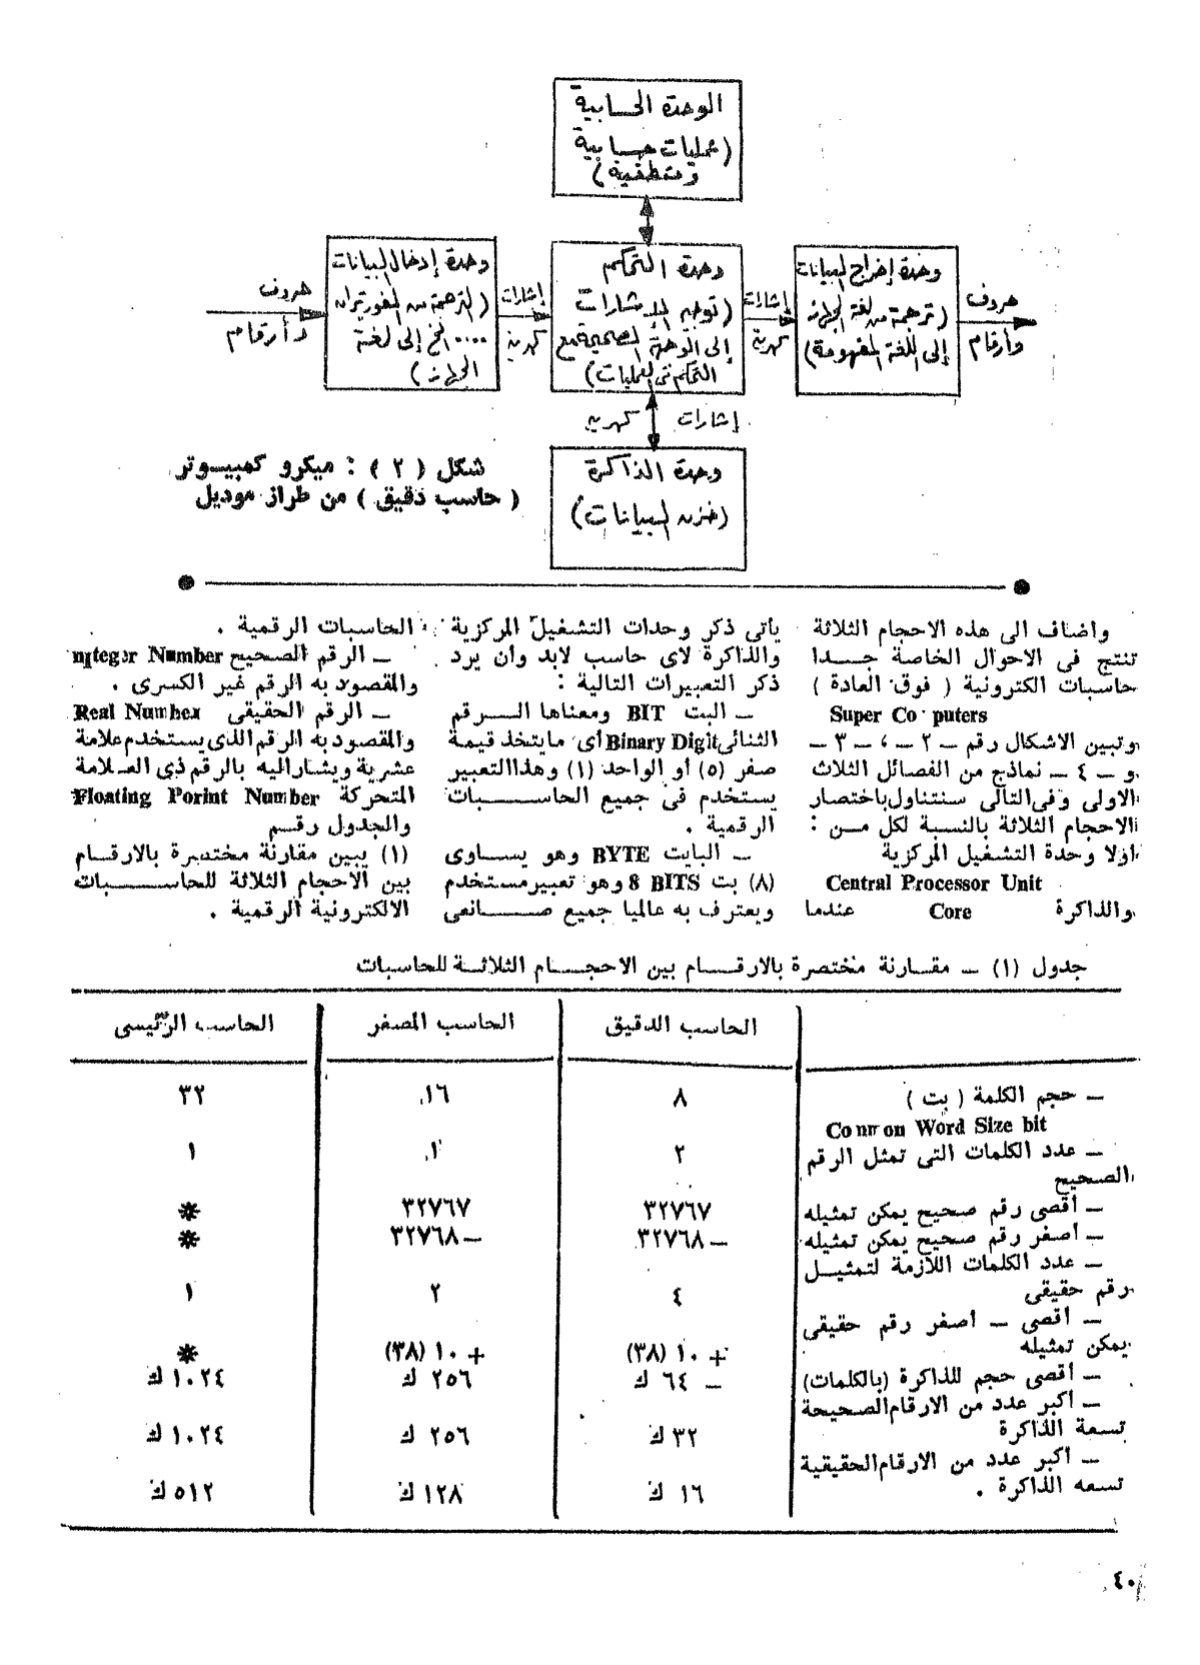 الوحدة الحسابية
(عمليات حسابية
ومنطقية)
وحدة إدخال البيانات
(الترجمة من الفورتران
..... الخ إلى لغة
الجهاز)
حروف
وأرقام
إشارات
كهربية
وحدة التحكم
(توجيه الإشارات
إلى الوحدة الصحيحة مع
التحكم فى العمليات)
إشارات
كهربية
وحدة إخراج البيانات
(ترجمة من لغة الجهاز
إلى اللغة المفهومة)
حروف
وأرقام
إشارات كهربية
وحدة الذاكرة
(خزن البيانات)
شكل ( ٢ ) : ميكرو كمبيوتر
( حاسب دقيق ) من طراز موديل
واضاف الى هذه الاحجام الثلاثة
تنتج فى الاحوال الخاصة جدا
حاسبات الكترونية ( فوق العادة )
Super Co puters
وتبين الاشكال رقم – ٢ – ، – ٣ –
و – ٤ – نماذج من الفصائل الثلاث
الاولى وفى التالى سنتناول باختصار
الاحجام الثلاثة بالنسبة لكل من :
اولا وحدة التشغيل المركزية
Central Processor Unit
والذاكرة Core عندما
يأتى ذكر وحدات التشغيل المركزية
والذاكرة لاى حاسب لابد وأن يرد
ذكر التعبيرات التالية :
– البت BIT ومعناها الرقم
الثنائى Binary Digit أى ما يتخذ قيمة
صفر (٥) أو الواحد (١) وهذا التعبير
يستخدم فى جميع الحاسبات
الرقمية .
– البايت BYTE وهو يساوى
(٨) بت 8 BITS وهو تعبير مستخدم
ويعترف به عالميا جميع صانعى
الحاسبات الرقمية .
– الرقم الصحيح nteger Number
والمقصود به الرقم غير الكسرى .
– الرقم الحقيقى Real Number
والمقصود به الرقم الذى يستخدم علامة
عشرية ويشار اليه بالرقم ذى العلامة
المتحركة Floating Porint Number
والجدول رقم
(١) يبين مقارنة مختصرة بالارقام
بين الاحجام الثلاثة للحاسبات
الالكترونية الرقمية .
جدول (١) – مقارنة مختصرة بالارقام بين الاحجام الثلاثة للحاسبات
الحاسب الدقيق الحاسب المصغر الحاسب الرئيسى
– حجم الكلمة ( بت ) ٨ ١٦ ٣٢
Common Word Size bit
– عدد الكلمات التى تمثل الرقم ٢ ١ ١
الصحيح
– أقصى رقم صحيح يمكن تمثيله ٣٢٧٦٧ ٣٢٧٦٧ *
– أصغر رقم صحيح يمكن تمثيله – ٣٢٧٦٨ – ٣٢٧٦٨ *
– عدد الكلمات اللازمة لتمثيل
رقم حقيقى ٤ ٢ ١
– أقصى – اصغر رقم حقيقى
يمكن تمثيله + ١٠ (٣٨) + ١٠ (٣٨) *
– أقصى حجم للذاكرة (بالكلمات) – ٦٤ ك ٢٥٦ ك ١٠٢٤ ك
– اكبر عدد من الارقام الصحيحة
تسعة الذاكرة ٣٢ ك ٢٥٦ ك ١٠٢٤ ك
– اكبر عدد من الارقام الحقيقية
تسعه الذاكرة . ١٦ ك ١٢٨ ك ٥١٢ ك
٤٠